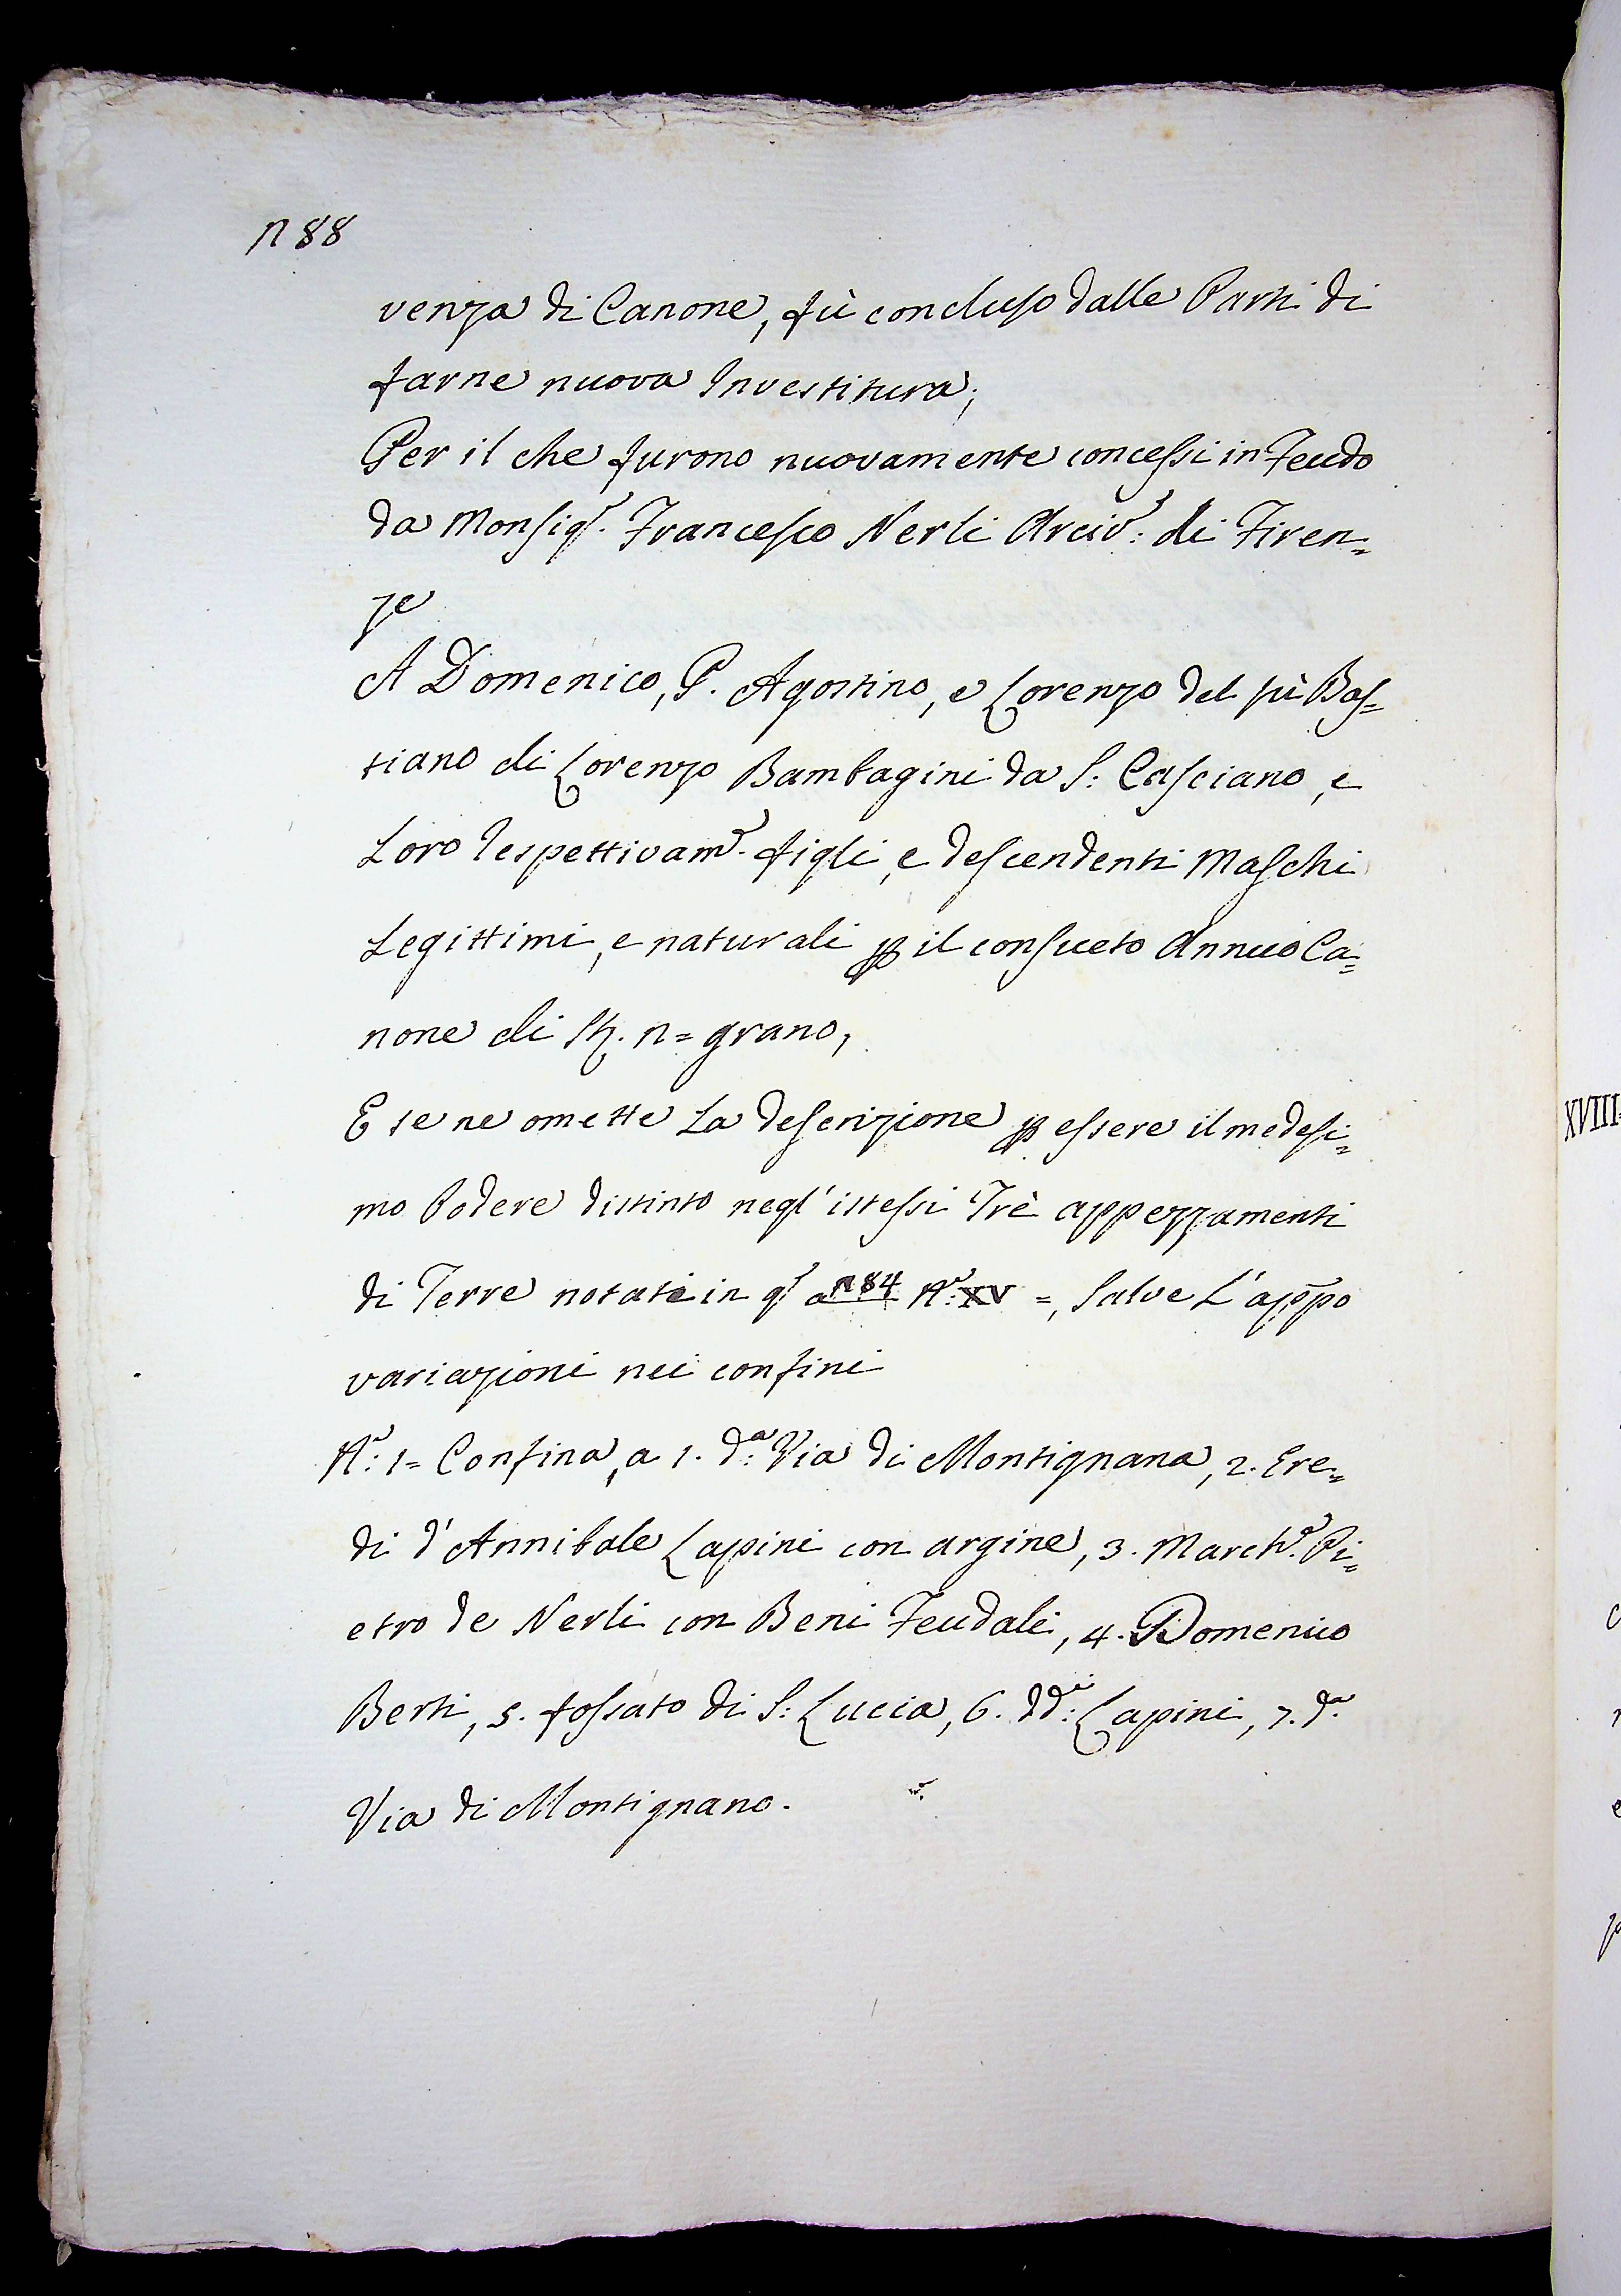 n 88
venza di Canone, fù concluso dalle Parti di
farne nuova Investitura;
Per il che furono nuovamente concessi in Feudo
da Monsigr. Francesco Nerli Arciv: di Firen=
ze
A Domenico, P. Agostino, e Lorenzo del fù Bas=
tiano di Lorenzo Bambagini da S: Casciano, e
Loro respettivam. figli, e descendenti Maschi
Legittimi, e naturali p il consueto Annuo Ca=
none di n= grano,
E se ne omette La descrizione p essere il medesi=
mo Podere distinto negl' istessi Trè appezzamenti
di Terre notate in a n84 No: XV =, Salve L' appo
variazioni nei confini
No: 1= Confina, a 1. da: Via di Montignana, 2. Ere=
di d' Annibale Lapini con argine, 3. March. Pi=
etro de Nerli con Beni Feudali, 4. Domenico
Berti, 5. fossato di S: Lucia, 6. ddi: Lapini, 7. da.
Via di Montignano.
XVIII